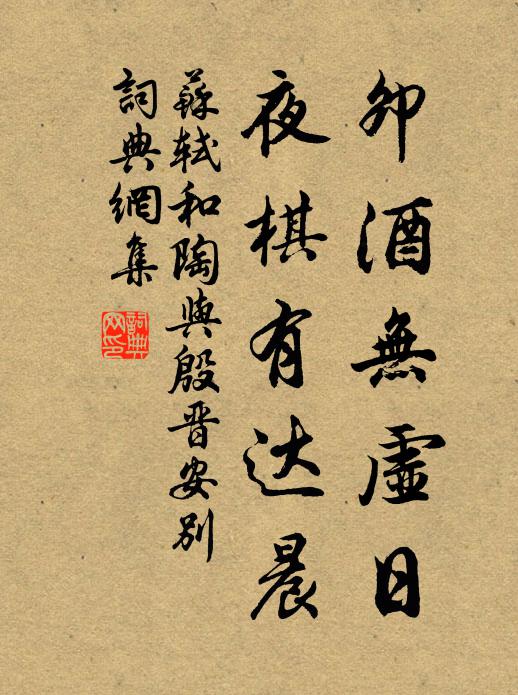 卯酒無虛日
夜棋有达晨
蘇軾和陶與殷晋安別
詞典網集
詞典網印